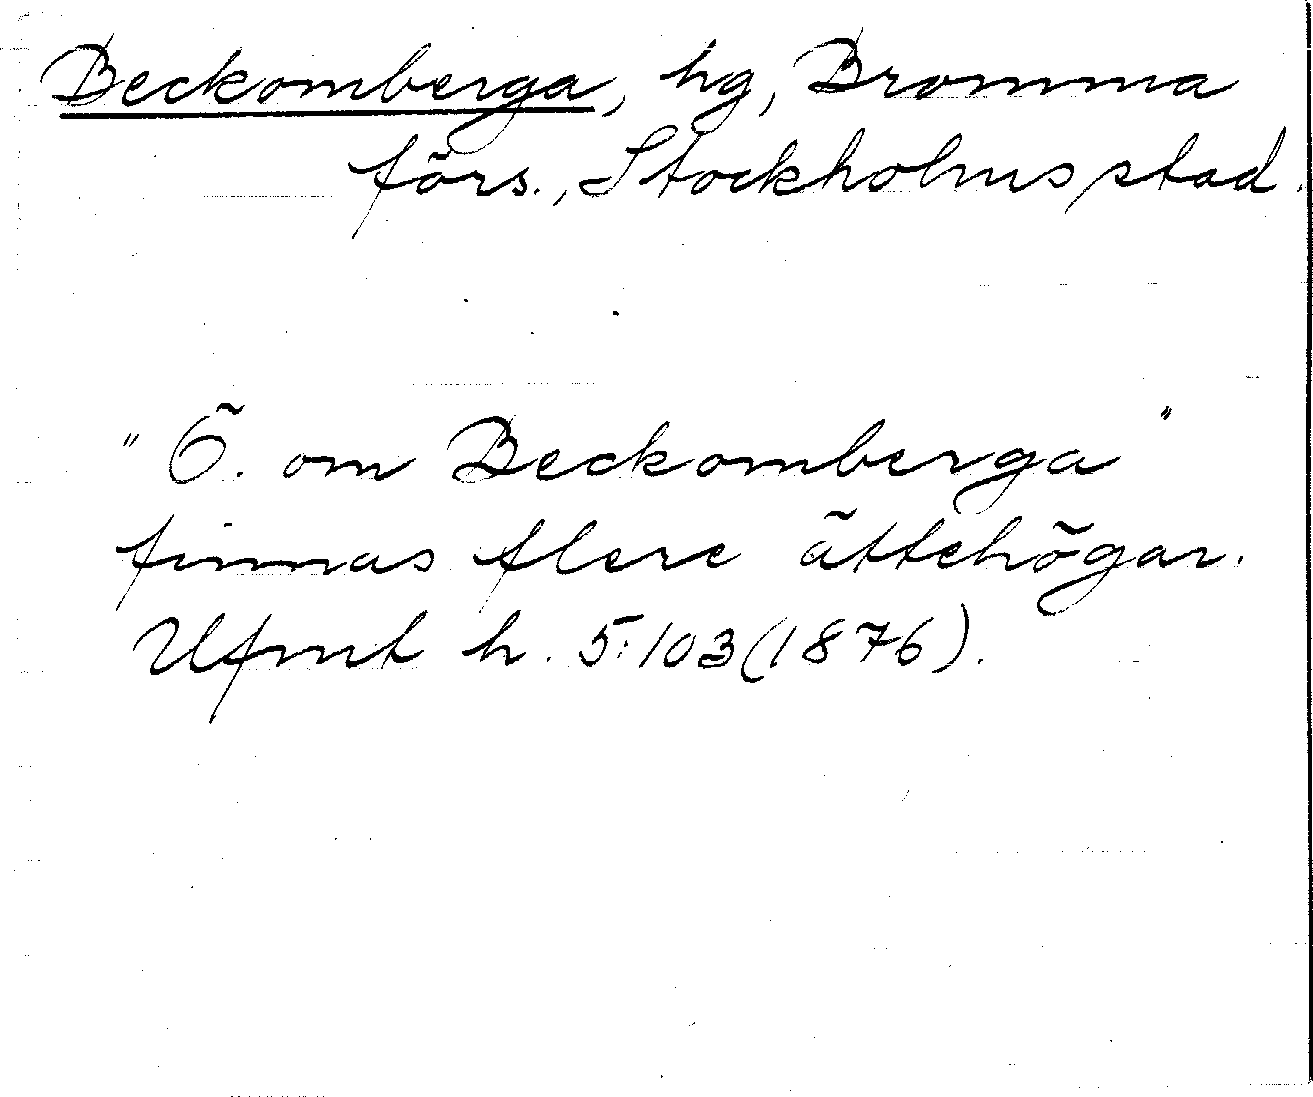 Beckomberga, hg, Bromma
förs., Stockholms stad.
"Ö. om Beckomberga"
finnas flere ättehögar.
Ufmt h. 5:103(1876).